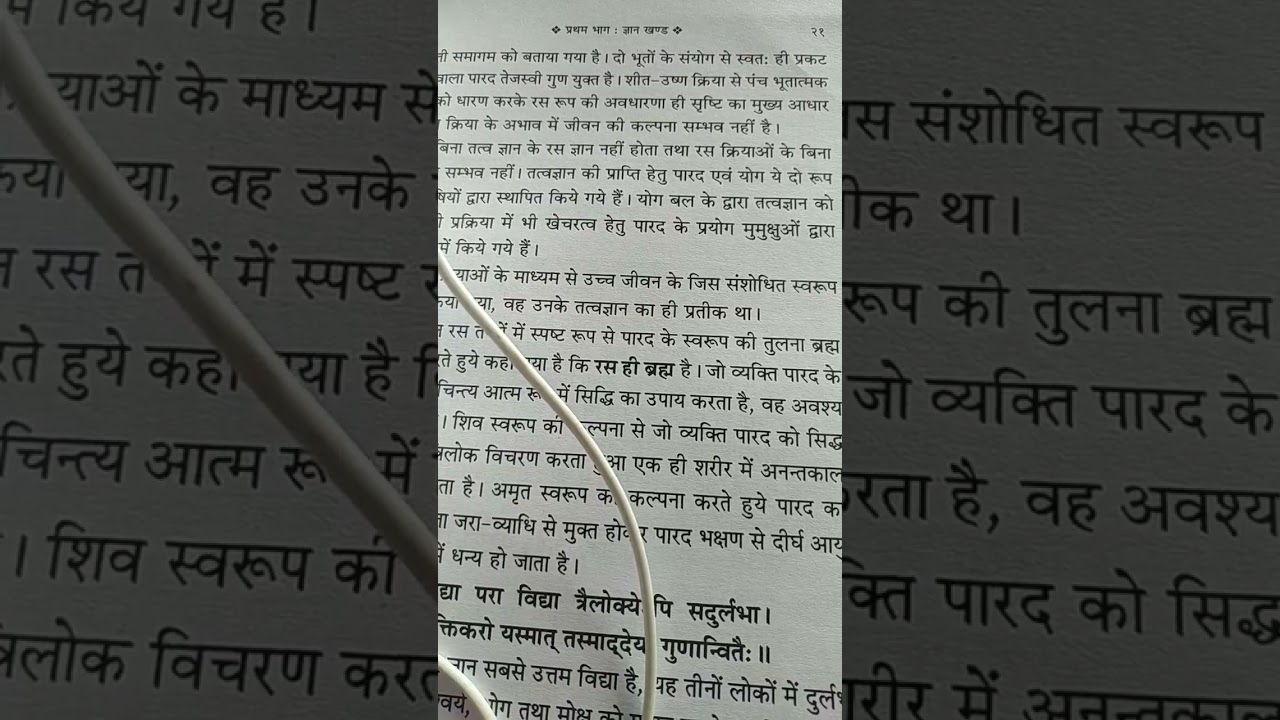 ❖ प्रथम भाग : ज्ञान खण्ड ❖ २१
समागम को बताया गया है। दो भूतों के संयोग से स्वतः ही प्रकट
वाला पारद तेजस्वी गुण युक्त है। शीत-उष्ण क्रिया से पंच भूतात्मक
को धारण करके रस रूप की अवधारणा ही सृष्टि का मुख्य आधार
क्रिया के अभाव में जीवन की कल्पना सम्भव नहीं है।
बिना तत्व ज्ञान के रस ज्ञान नहीं होता तथा रस क्रियाओं के बिना
सम्भव नहीं। तत्वज्ञान की प्राप्ति हेतु पारद एवं योग ये दो रूप
षियों द्वारा स्थापित किये गये हैं। योग बल के द्वारा तत्वज्ञान को
प्रक्रिया में भी खेचरत्व हेतु पारद के प्रयोग मुमुक्षुओं द्वारा
में किये गये हैं।
याओं के माध्यम से उच्च जीवन के जिस संशोधित स्वरूप
वह उनके तत्वज्ञान का ही प्रतीक था।
रस में स्पष्ट रूप से पारद के स्वरूप की तुलना ब्रह्म
रते हुये कहा गया है कि रस ही ब्रह्म है। जो व्यक्ति पारद के
चिन्त्य आत्म में सिद्धि का उपाय करता है, वह अवश्य
। शिव स्वरूप की कल्पना से जो व्यक्ति पारद को सिद्ध
त्रलोक विचरण करता हुआ एक ही शरीर में अनन्तकाल
ता है। अमृत स्वरूप की कल्पना करते हुये पारद
जरा-व्याधि से मुक्त होकर पारद भक्षण से दीर्घ
में धन्य हो जाता है।
द्या परा विद्या त्रैलोक्ये पि सदुर्लभा।
क्तिकरो यस्मात् तस्माद्देय गुणान्वितैः॥
ज्ञान सबसे उत्तम विद्या है, यह तीनों लोकों में
योग तथा मोक्ष को